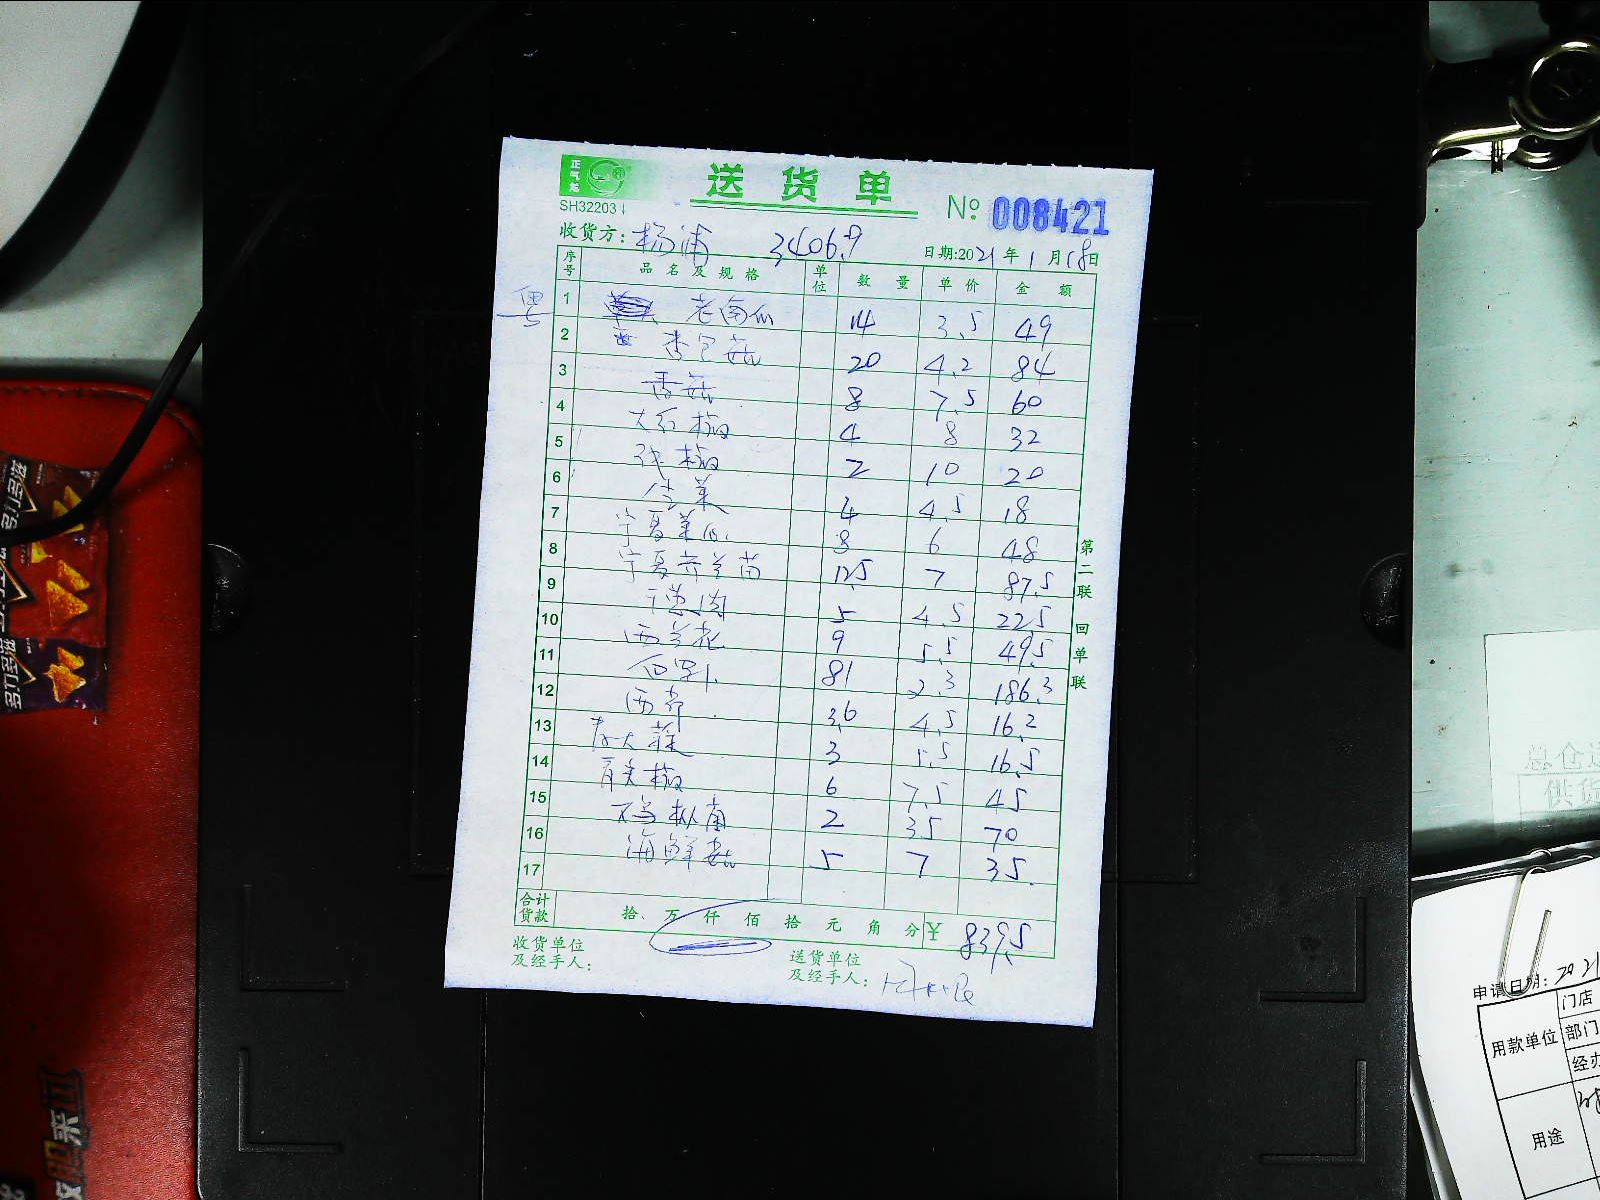 正气龙
送货单
SH32203
№ 008421
收货方: 杨浦 3406.9 日期:2021年1月18日
序号 品名及规格 单位 数量 单价 金额
1 老南瓜 14 3.5 49
2 杏包菇 20 4.2 84
3 香菇 8 7.5 60
4 大红椒 4 8 32
5 线椒 2 10 20
6 生菜 4 4.5 18
7 宁夏菜心 8 6 48
8 宁夏芥兰苗 12.5 7 87.5
9 5 4.5 22.5
10 西兰花 9 5.5 49.5
11 81 2.3 186.3
12 西芹 3.6 4.5 16.2
13 3 5.5 16.5
14 青尖椒 6 7.5 45
15 2 35 70
16 海鲜菇 5 7 35.
17
合计货款 拾 万 仟 佰 拾 元 角 分 ¥ 839.5
收货单位及经手人:
送货单位及经手人:
第二联 回单联
总仓
供货
申请日期: 2021
用款单位 门店
部门
经办
用途